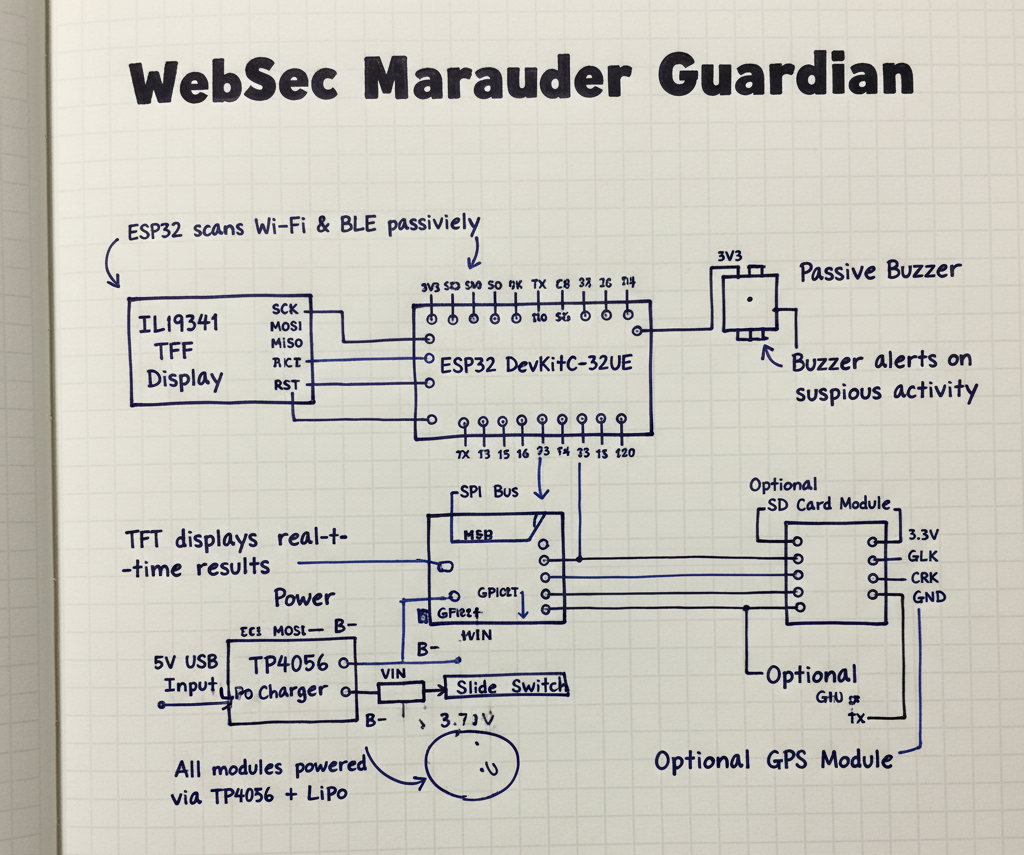 WebSec Marauder Guardian
ESP32 scans Wi-Fi & BLE passiviely
IL19341
TFF
Display
SCK
MOSI
MISO
RST
3V3
SO
TX
ESP32 DevKitC-32UE
TX 13 15 16 23 14 33 1S 120
3V3
Passive Buzzer
Buzzer alerts on
suspious activity
SPI Bus
TFT displays real-t-
-time results
Power
MOSI— B-
TP4056
Po Charger
5V USB
Input
B-
VIN
Slide Switch
B-
All modules powered
via TP4056 + LiPo
Optional
SD Card Module
3.3V
GLK
CRK
GND
Optional
tx
Optional GPS Module